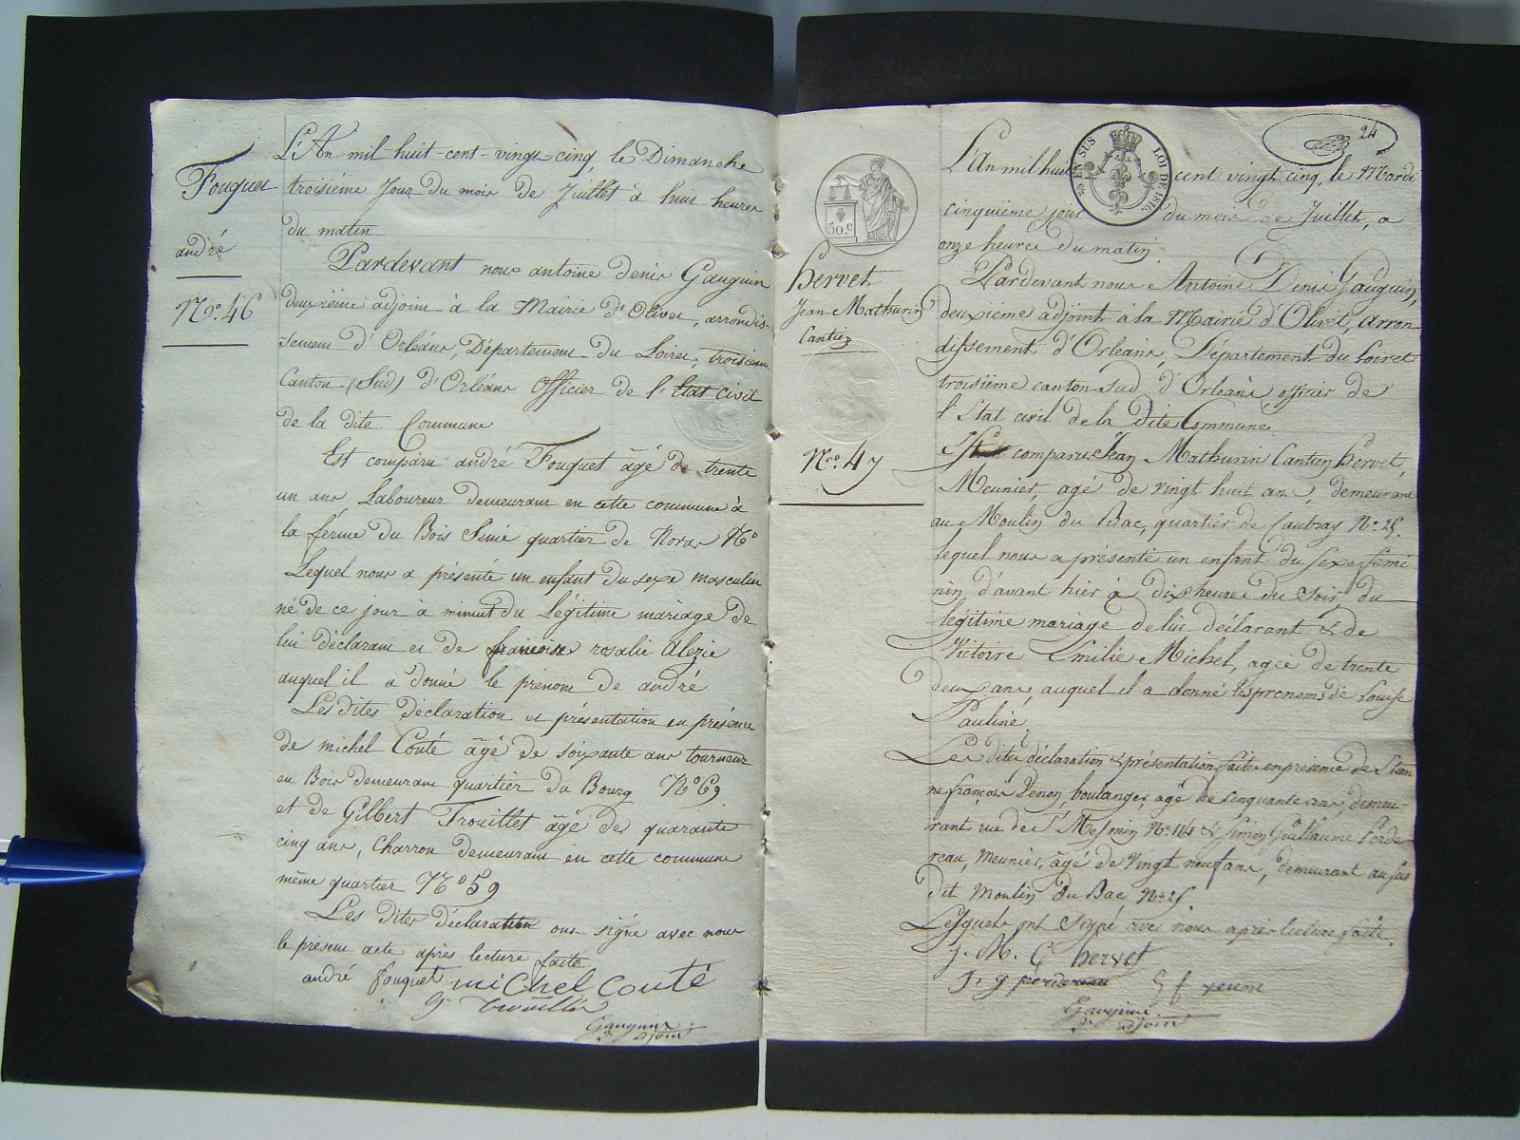 Fouquet
andré
No. 46
L'An mil-huit-cent-vingt-cinq le Dimanche
troisième Jour du mois de Juillet à huit heures
du matin
Pardevant nous antoine denis Gauguin
deuxième adjoint à la Mairie d'Olivet, arrondis-
sement d'Orléans, Département du Loiret, troisième
Canton (Sud) d'Orléans officier de l'Etat civil
de la dite Commune
Est comparu andré Fouquet âgé de trente
un ans Laboureur demeurant en cette commune à
la ferme du Bois quartier de No
Lequel nous a présenté un enfant du sexe masculin
né de ce jour à minuit du Légitime mariage de
lui déclarant et de francoise rosalie alezie
auquel il a donné le prenom de andré
Les dites déclaration et présentation en présence
de michel Couté âgé de soixante ans tourneur
en Bois demeurant quartier du Bourg No 69
et de Gilbert Trouillet âgé de quarante
cinq ans, Charron demeurant en cette commune
même quartier No 59
Les dites déclaration ont signé avec nous
le présent acte après lecture faite
andré fouquet michel couté
g trouillet
Gauguin
adjoint
24
25 EN SUS LOI DE 1816
50 c
hervet
Jean Mathurin
Cantien
No. 47
L'An mil huit cent vingt cinq, le Mardi
cinquième jour du mois de Juillet, a
onze heures du matin.
Pardevant nous Antoine Denis Gauguin,
deuxieme adjoint à la Mairie d'Olivet, arron
dissement d'Orleans, Département du Loiret
troisième canton sud d'Orleans officier de
l'Etat civil de la dite Commune
Est comparu Jean Mathurin Cantien hervet,
Meunier, agé de vingt huit ans, demeurant
au Moulin du Bac, quartier de Caubray No 25.
lequel nous a présenté un enfant du sexe femi
nin d'avant hier à dix heures du soir, du
légitime mariage de lui déclarant & de
Victoire Emilie Michel, agée de trente
deux ans, auquel il a donné les prenoms de Louise
Pauline
Les dites déclaration & présentation faite en presence de Etien
ne françois Venon, boulanger, agé de cinquante ans, demeu-
rant rue de St Mesmin No 114 & Simon Guillaume Perde
reau, Meunier, âgé de vingt neuf ans, demeurant au sus
dit Moulin du Bac, No 25.
Lesquels ont signé avec nous après lecture faite.
J. M. C hervet
S. g perdereau E f venon
Gauguin
adjoint